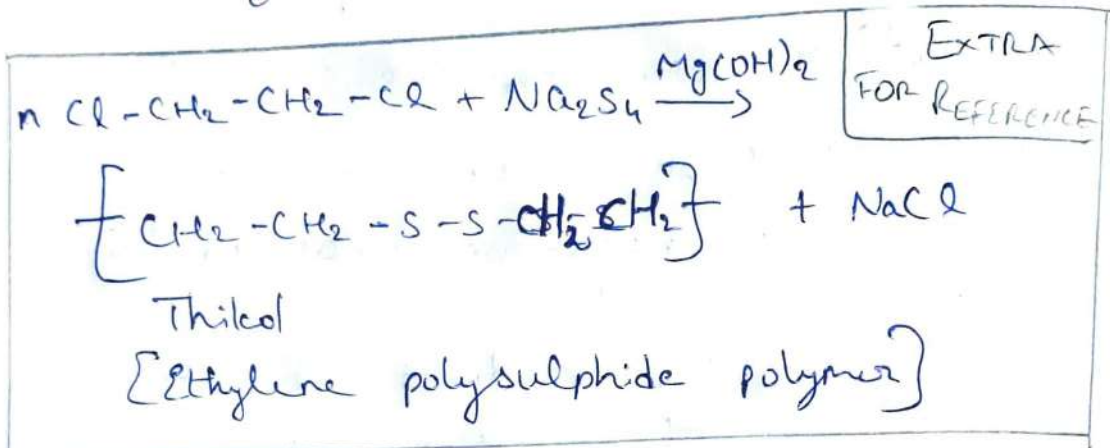 n Cl-CH2-CH2-Cl + Na2S4 Mg(OH)2 →
EXTRA
FOR REFERENCE
[CH2-CH2-S-S-CH2-CH2] + NaCl
Thikol
[Ethylene polysulphide polymer]